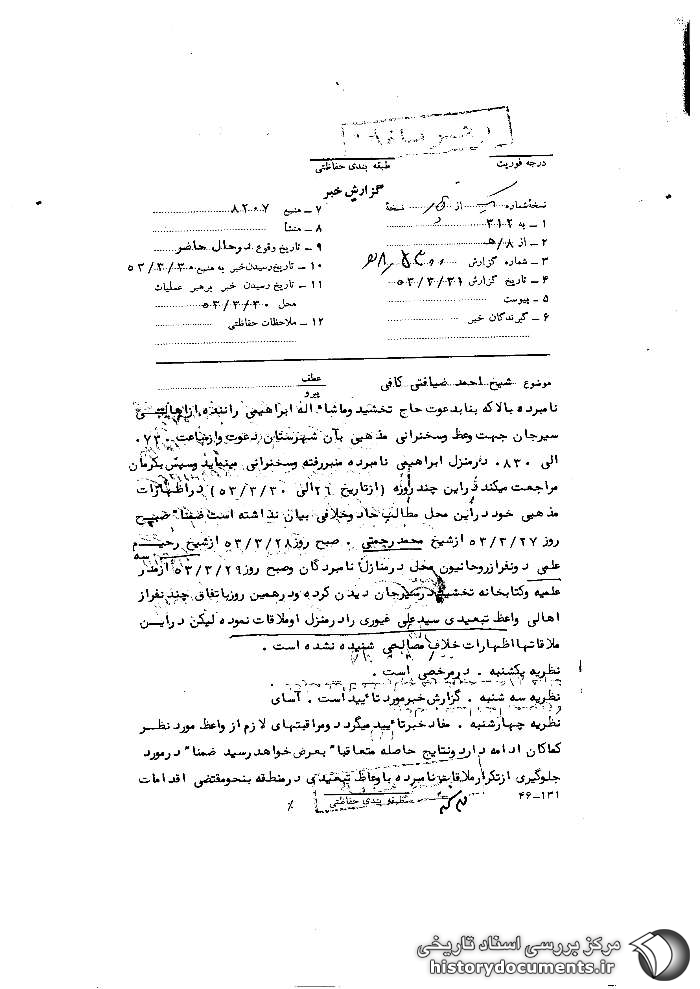 درجه فوریت
طبقه بندی حفاظتی
گزارش خبر
نسخهٔ شماره یک از نسخهٔ
۱ - به ۳۱۲
۲ - از ۸/هـ
۳ - شماره گزارش
۴ - تاریخ گزارش ۵۳/۳/۳۱
۵ - پیوست
۶ - گیرندگان خبر
۷ - منبع ۸۲۰۷
۸ - منشأ
۹ - تاریخ وقوع درحال حاضر
۱۰ - تاریخ رسیدن خبر به منبع ۵۳/۳/۳۰
۱۱ - تاریخ رسیدن خبر برهبر عملیات
محل ۵۳/۳/۳۰
۱۲ - ملاحظات حفاظتی
موضوع شیخ احمد ضیافتی کافی
عطف
پیرو
نامبرده بالاکه بنابدعوت حاج تخشید وماشاء اله ابراهیمی راننده ازاهالی
سیرجان جهت وعظ وسخنرانی مذهبی بآن شهرستان دعوت وازساعت ۰۷۳۰
الی ۰۸۳۰ درمنزل ابراهیمی نامبرده منبررفته وسخنرانی مینماید وسپس بکرمان
مراجعت میکند دراین چند روزه (ازتاریخ ۲۶ الی ۵۳/۳/۳۰) دراظهارات
مذهبی خود دراین محل مطالب حاد وخلافی بیان نداشته است ضمنا" صبح
روز ۵۳/۳/۲۷ ازشیخ محمد رحمتی . صبح روز ۵۳/۳/۲۸ ازشیخ رحیم
علمی دونفرازروحانیون محلی درمنازل نامبردگان وصبح روز ۵۳/۳/۲۹ ازمدرسه
علمیه وکتابخانه تخشید درسیرجان دیدن کرده ودرهمین روزباتفاق چند نفراز
اهالی واعظ تبعیدی سید علی غیوری رادرمنزل اوملاقات نموده لیکن دراین
ملاقاتهااظهارات خلاف مصالحی شنیده نشده است .
نظریه یکشنبه . درمرخصی است .
نظریه سه شنبه . گزارش خبرمورد تائید است . آسای
نظریه چهارشنبه . مفاد خبرتائید میگردد ومراقبتهای لازم ازواعظ مورد نظر
کماکان ادامه دارد ونتایج حاصله متعاقبا" بعرض خواهد رسید ضمنا" درمورد
جلوگیری ازتکرارملاقات نامبرده باوعاظ تبعیدی درمنطقه بنحومقتضی اقدامات
طبقه بندی حفاظتی
۴۶-۱۳۱
مرکز بررسی اسناد تاریخی
historydocuments.ir